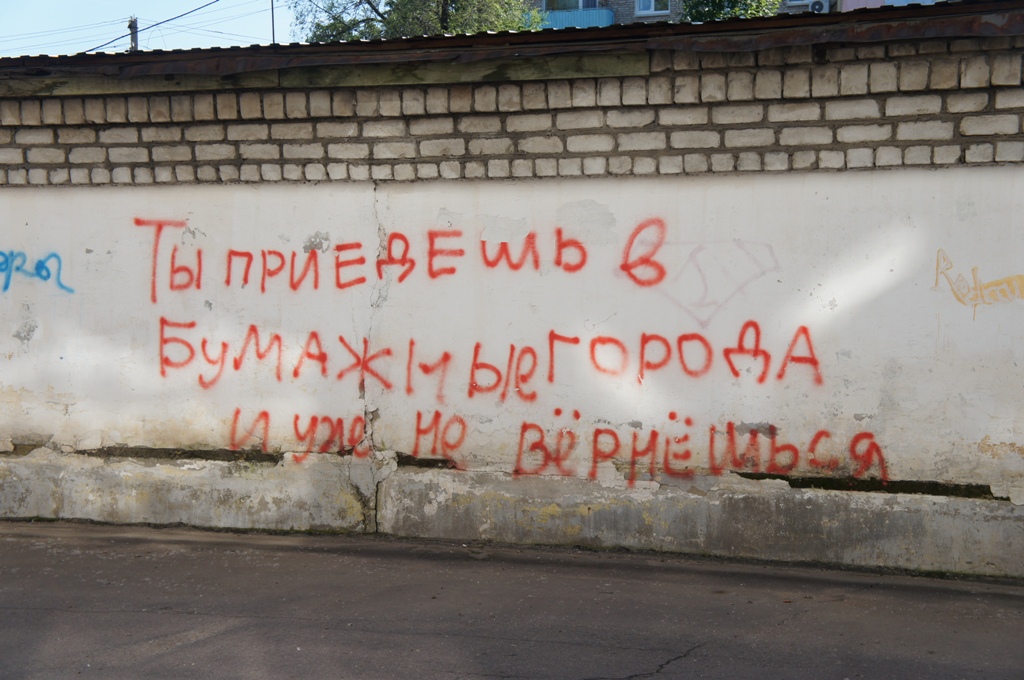 Ты приедешь в
Бумажные города
и уже не вёрнёшься